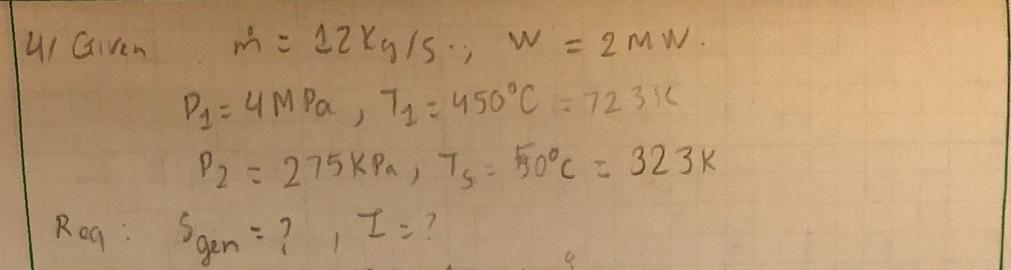 4/ Given ṁ = 12 Kg/s ., W = 2 MW.
P₁ = 4 MPa, T₁ = 450°C = 723 K
P₂ = 275 KPa, Tₛ = 50°C = 323 K
Req: Sgen = ?, I = ?